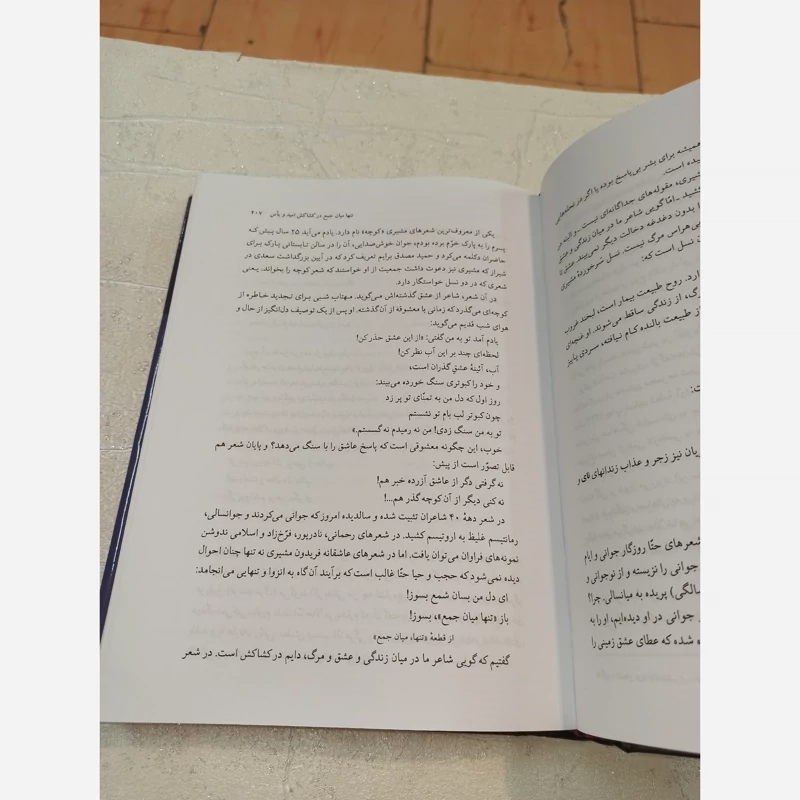 همیشه برای بشر بی‌پاسخ بوده یا اگر در لحظه‌هایی
یده است.
شیری، مقوله‌های جداگانه‌ای نیست - و البته در
کشید - امّا گویی شاعر ما در میان زندگی و عشق
با بدون دغدغه دخالت دیگر نمی‌بیند. عشق تا
بی‌هراس مرگ نیست. نسل سرخوردهٔ مشیری
ن نسل است که:
ارد. روح طبیعت بیمار است، لبخند غروب
رگ، از زندگی ساقط می‌شوند. او غنچه‌ای
از طبیعت بالنده کام نیافته، سردی پاییز
ت:
ریان نیز زجر و عذاب زندانهای نای و
شعرهای حتّا روزگار جوانی و ایام
جوانی را نزیسته و از نوجوانی و
سالگی) پریده به میانسالی. چرا!
جوانی در او دیده‌ایم، او را به
ه شده که عطای عشق زمینی را
تنها میان جمع در کشاکش امید و یأس ۴۰۷
یکی از معروف‌ترین شعرهای مشیری «کوچه» نام دارد. یادم می‌آید ۲۵ سال پیش که
پسرم را به پارک خرّم برده بودم، جوان خوش‌صدایی، آن را در سالن تابستانی پارک برای
حاضران دکلمه می‌کرد و حمید مصدق برایم تعریف کرد که در آیین بزرگداشت سعدی در
شیراز که مشیری نیز دعوت داشت جمعیت از او خواستند که شعر کوچه را بخواند. یعنی
شعری که در دو نسل خواستگار دارد.
در آن شعر، شاعر از عشق گذشته‌اش می‌گوید. مهتاب شبی برای تجدید خاطره از
کوچه‌ای می‌گذرد که زمانی با معشوقه از آن گذشته. او پس از یک توصیف دل‌انگیز از حال و
هوای شب قدیم می‌گوید:
یادم آمد تو به من گفتی: «از این عشق حذر کن!
لحظه‌ای چند بر این آب نظر کن!
آب، آئینهٔ عشق گذران است،
و خود را کبوتری سنگ خورده می‌بیند:
روز اول که دل من به تمنّای تو پر زد
چون کبوتر لب بام تو نشستم
تو به من سنگ زدی! من نه رمیدم نه گسستم.»
خوب، این چگونه معشوقی است که پاسخ عاشق را با سنگ می‌دهد؟ و پایان شعر هم
قابل تصوّر است از پیش:
نه گرفتی دگر از عاشق آزرده خبر هم!
نه کنی دیگر از آن کوچه گذر هم...!
در شعر دههٔ ۴۰ شاعران تثبیت شده و سالدیده امروز که جوانی می‌کردند و جوانسالی،
رمانتیسم غلیظ به اروتیسم کشید. در شعرهای رحمانی، نادرپور، فرّخ‌زاد و اسلامی ندوشن
نمونه‌های فراوان می‌توان یافت. اما در شعرهای عاشقانه فریدون مشیری نه تنها چنان احوال
دیده نمی‌شود که حجب و حیا حتّا غالب است که برآیند آن گاه به انزوا و تنهایی می‌انجامد:
ای دل من بسان شمع بسوز!
باز «تنها میان جمع»، بسوز!
از قطعهٔ «تنها، میان جمع»
گفتیم که گویی شاعر ما در میان زندگی و عشق و مرگ، دایم در کشاکش است. در شعر